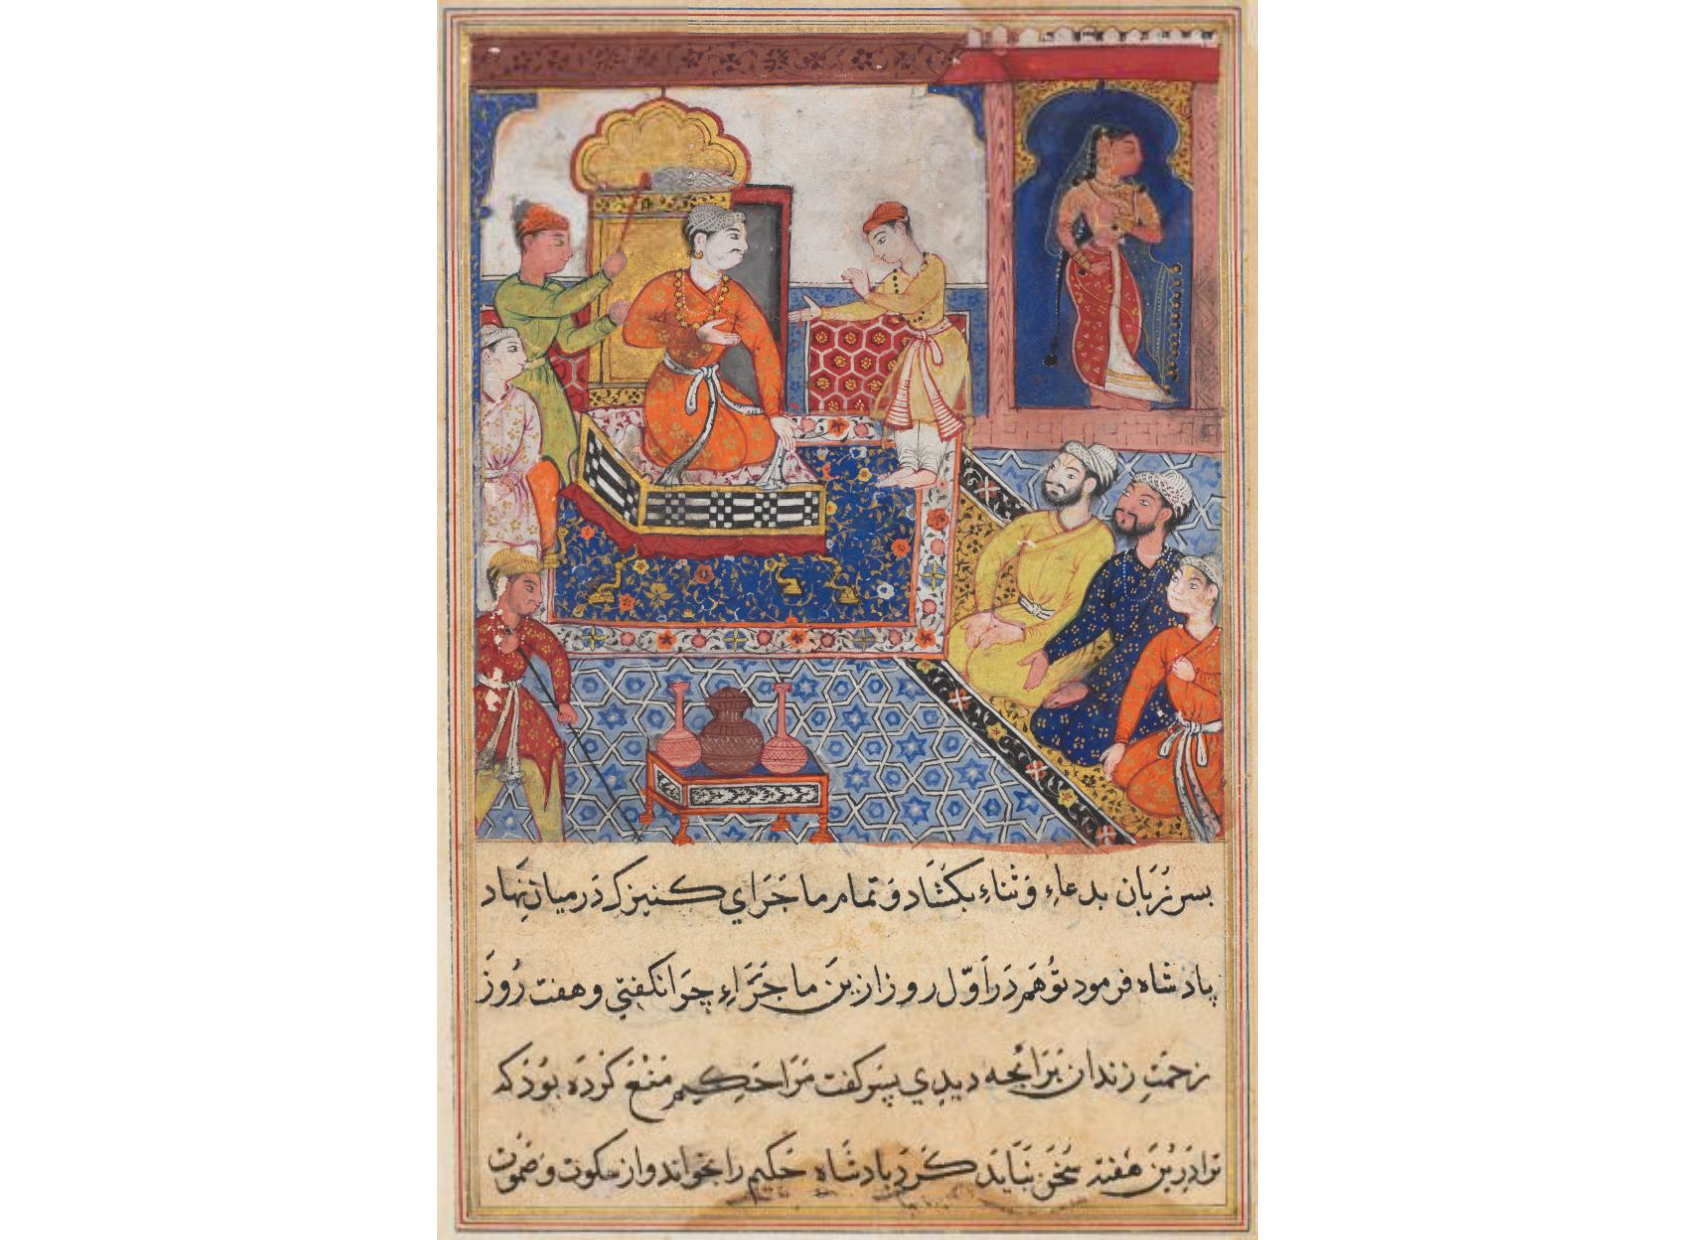 پسر زبان بدعاء و ثناء بکشاد و تمام ماجرای کنیزک در میان نهاد
پادشاه فرمود تو هم در اوّل روز ازین ماجراء چرا نکفتی و هفت روز
زحمت زندان برانچه دیدی پسر کفت مرا حکیم منع کرده بود که
ترا درین هفته سخن نباید کرد پادشاه حکیم را بخواند و از سکوت و صموت